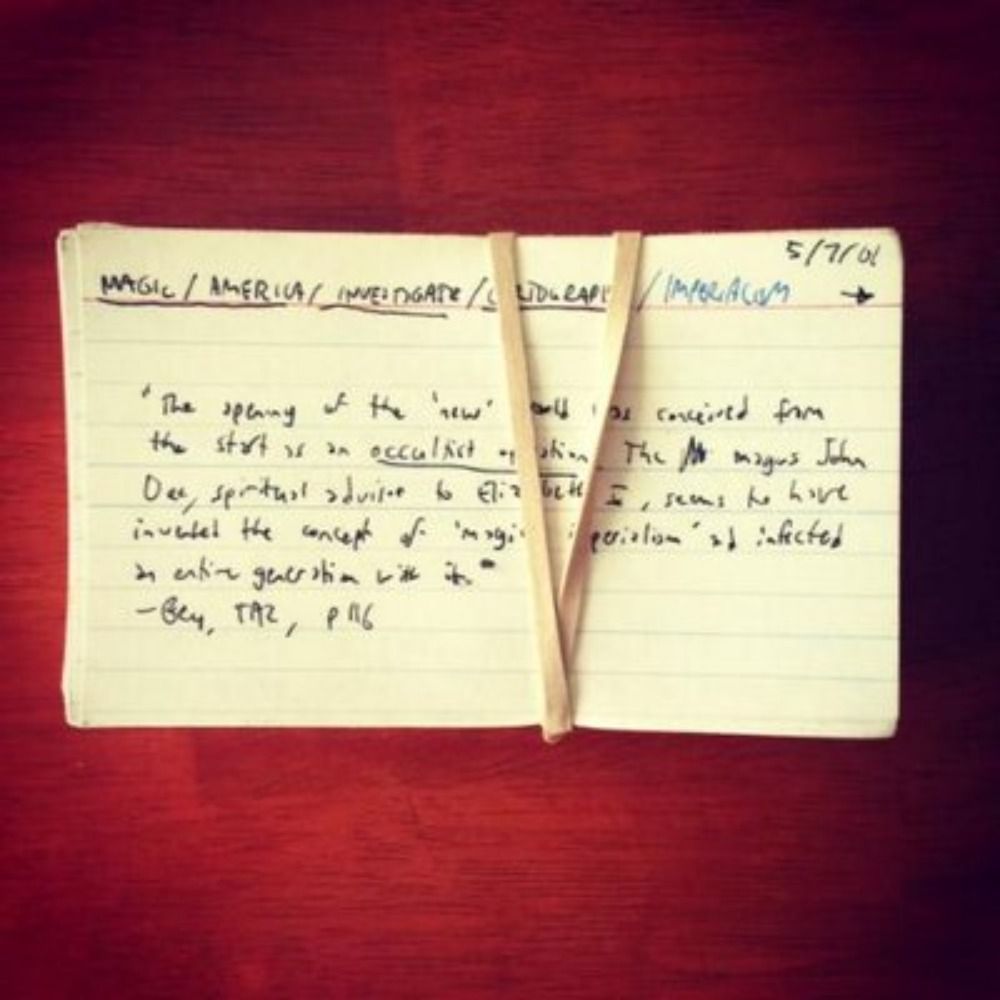 5/7/01
MAGIC / AMERICA / INVESTIGATE / / IMPERIALISM →
"The opening of the 'new' was conceived from
the start as an occultist The magus John
Dee, spiritual advisor to Elizabeth I, seems to have
invented the concept of and infected
an entire generation with it."
– Bey, TAZ, p 116